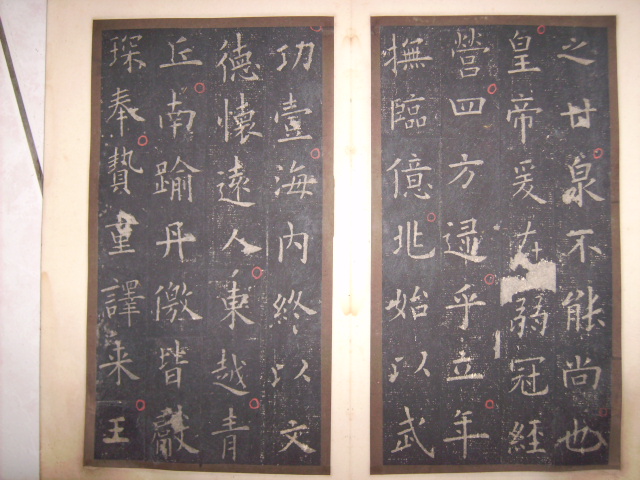 之甘泉不能尚也
皇帝爰在弱冠經
營四方逮乎立年
撫臨億兆始以武
功壹海内終以文
德懷遠人東越青
丘南踰丹徼皆獻
琛奉贄重譯来王